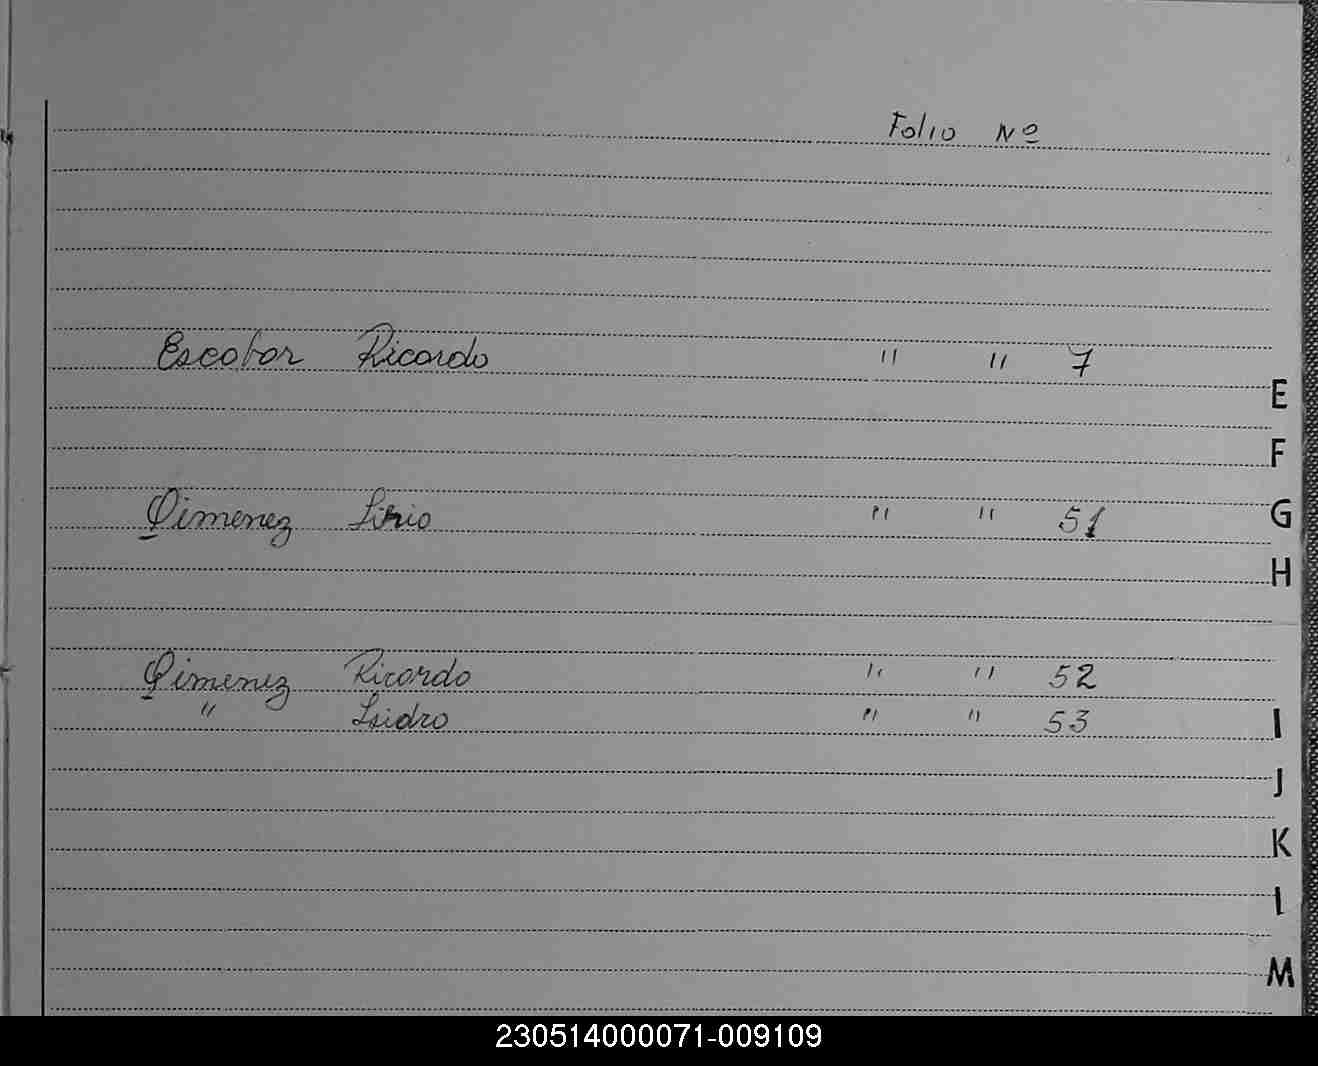 Folio Nº
Escobar Ricardo " " 7
E
F
Gimenez Lirio " " 51
G
H
Gimenez Ricardo " " 52
" Isidro " " 53
I
J
K
L
M
230514000071-009109